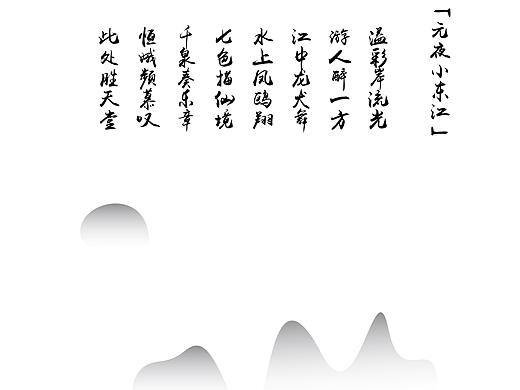 「元夜小东江」
溢彩岸流光
游人醉一方
江中龙犬舞
水上凤鸥翔
七色描仙境
千泉奏乐章
恒娥频慕叹
此处胜天堂